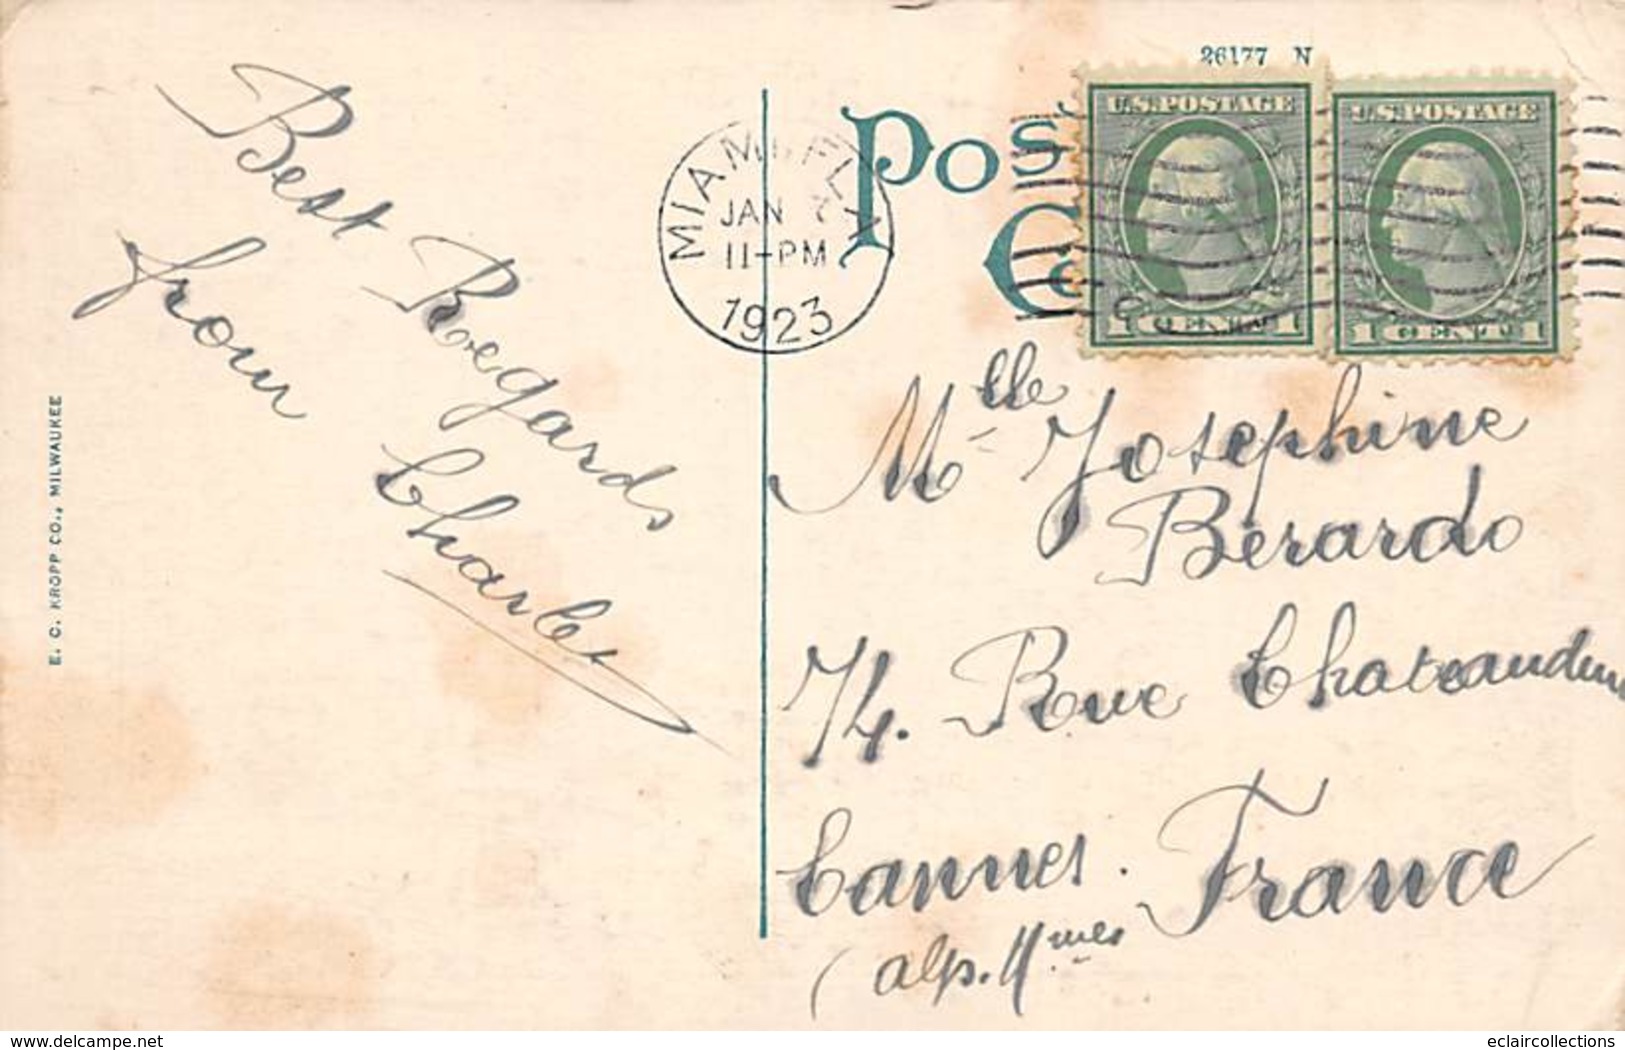 26177 N
U.S. POSTAGE
U.S. POSTAGE
1 CENT 1
1 CENT 1
Pos
MIAMI, FLA
JAN 7
11-PM
1923
Best Regards
from
Charles
Mlle Josephine
Berardo
74. Rue Chateaudun
Cannes. France
(alp. Mmes
E. C. KROPP CO., MILWAUKEE
www.delcampe.net
eclaircollections